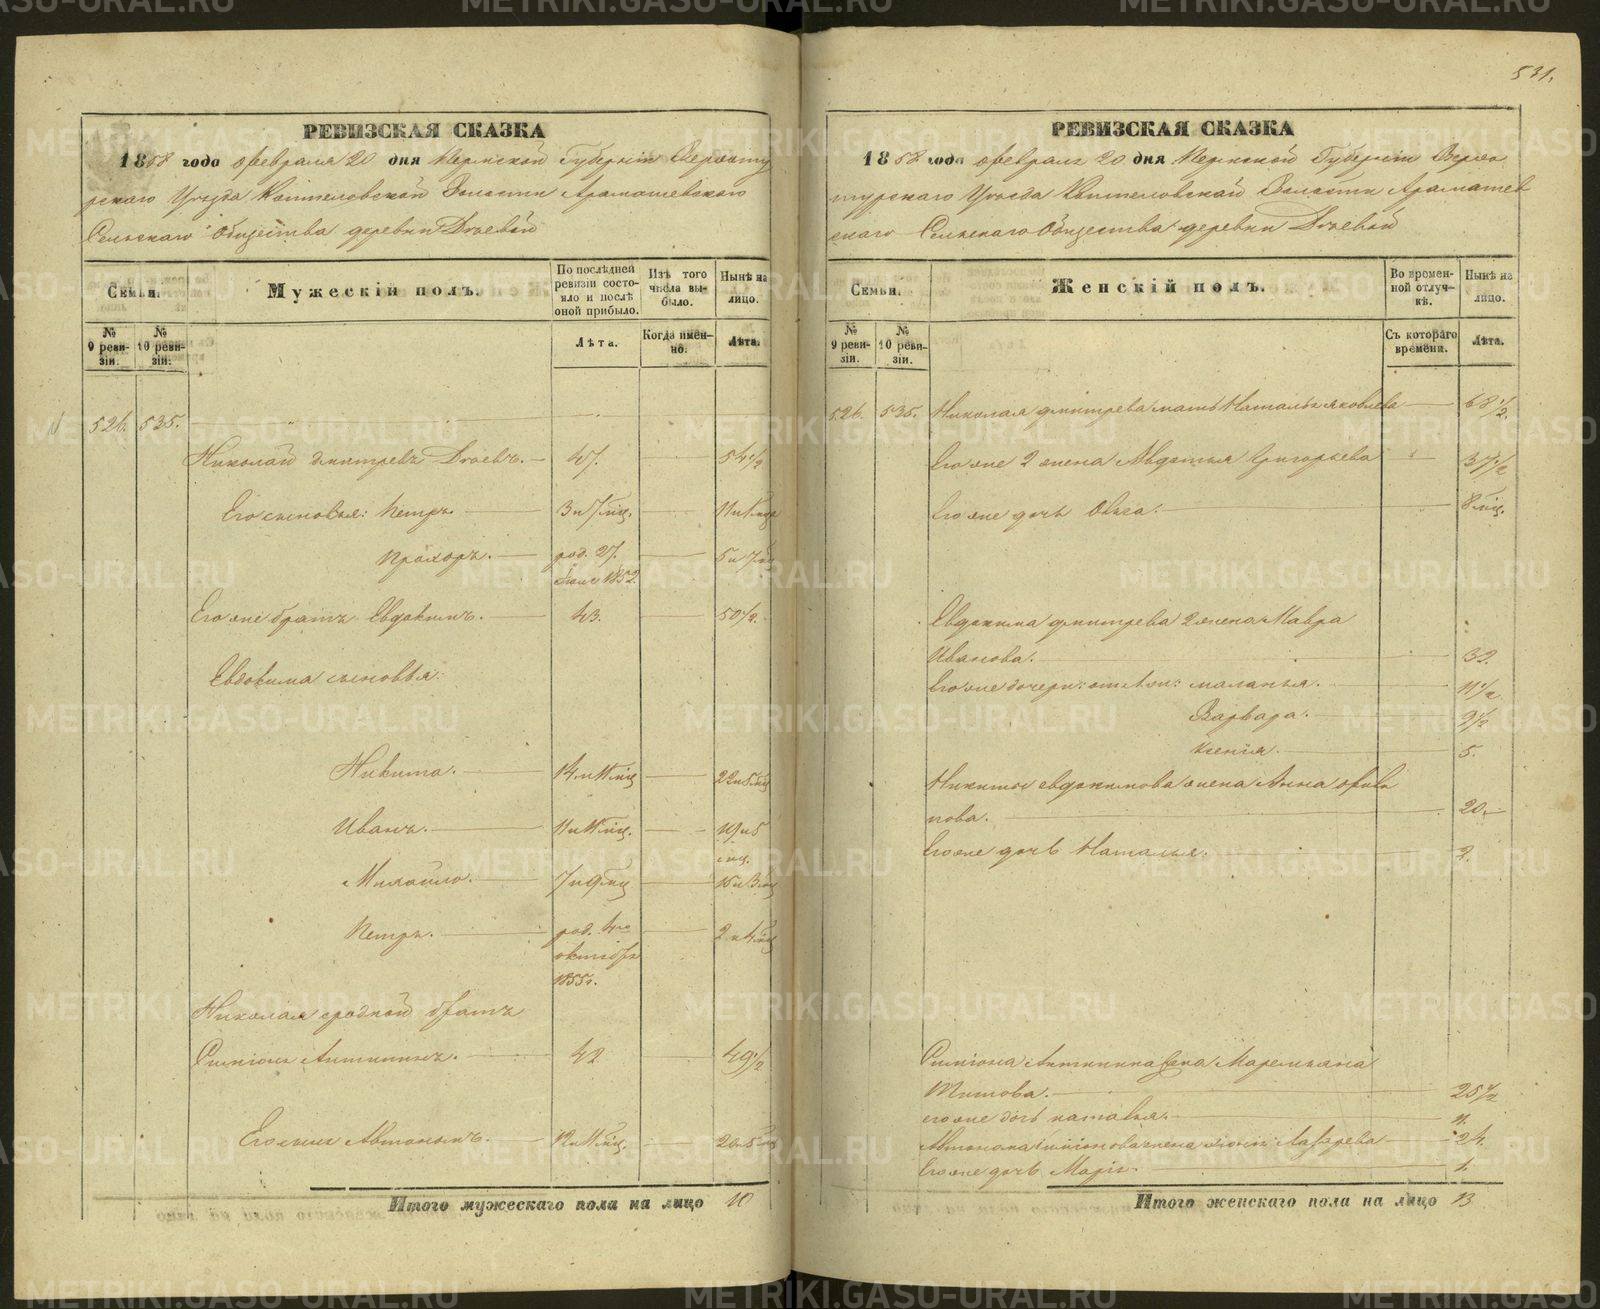 531.
РЕВИЗСКАЯ СКАЗКА
1858 года февраля 20 дня Пермской Губерніи Верхоту
рскаго Уѣзда Коптеловской Волости Арамашевскаго
Сельскаго Общества деревни Дѣевой
Семьи.
Мужескій полъ.
По послѣдней ревизіи состояло и послѣ оной прибыло.
Изъ того числа выбыло.
Нынѣ на лицо.
№ 9 ревизіи.
№ 10 ревизіи.
Лѣта.
Когда именно.
Лѣта.
526. 535.
Николай Дмитревъ Дѣевъ. 47. 54 1/2
Его сыновья: Петръ. 3 и 7 мц. 11 и 1 мца
Прохоръ. род. 27. 5 и 7 мц
Іюля 1852.
Его же братъ Евдокимъ. 43. 50 1/2.
Евдокима сыновья:
Никита. 14 и 11 мц 22 и 5 мц
Иванъ. 11 и 11 мц. 19 и 5
мц.
Михайло. 7 и 9 мц 15 и 3 мц
Петръ. род. 4го 2 и 4 мц
октября
1855 г.
Николая сродной братъ
Симіонъ Антипинъ. 42 49 1/2
Его сынъ Автономъ. 12 и 11 мц. 20 и 5 мц
Итого мужескаго пола на лицо 10
РЕВИЗСКАЯ СКАЗКА
1858 года февраля 20 дня Пермской Губерніи Верхо
турскаго Уѣзда Коптеловской Волости Арамашев
скаго Сельскаго Общества деревни Дѣевой
Семьи.
Женскій полъ.
Во временной отлучкѣ.
Нынѣ на лицо.
№ 9 ревизіи.
№ 10 ревизіи.
Съ котораго времени.
Лѣта.
526. 535. Николая Дмитрева мать Наталья Яковлева 68 1/2.
Его же 2 жена Авдотья Григорьева 37 1/2
Его же дочь Ольга. 8 мц.
Евдокима Дмитрева 2 жена Мавра
Иванова. 32.
Его же дочери: Маланья. 11 1/2
Варвара. 9 1/2
Ксенія. 5.
Никиты Евдокимова жена Анна Филі
пова. 20.
Его же дочь Наталья. 2.
Симіона Антипина жена Маремьяна
Титова. 25 1/2
его же дочь Наталья. 4.
Автонома Симіонова жена Лазарева 24.
Его же дочь Марія. 1.
Итого женскаго пола на лицо 13
METRIKI.GASO-URAL.RU